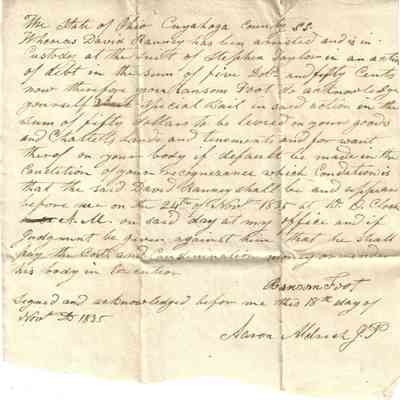 The State of Ohio Cuyahoga County SS.
Whereas David Ranney has been arrested and is in
Custody at the suit of Stephen Taylor in an action
of debt in the sum of five Dol. and fifty Cents
now therefore you Ransom Foot do acknowledge
yourself special Bail in said action in the
Sum of fifty dollars to be levied in your goods
and Chattels Lands and tenements and for want
thereof on your body if default be made in the
Condition of your recognezance which Condition is
that the said David Ranney shall be and appear
before me on the 24th of Novr 1835 at O. Clock
A.M. on said day at my office and if
Judgment be given against him that he shall
pay the Costs and condemnation money or render
his body in Execution
Ransom Foot
Signed and acknowledged before me this 18th day of
Novr AD 1835
Aaron Aldrich J.P